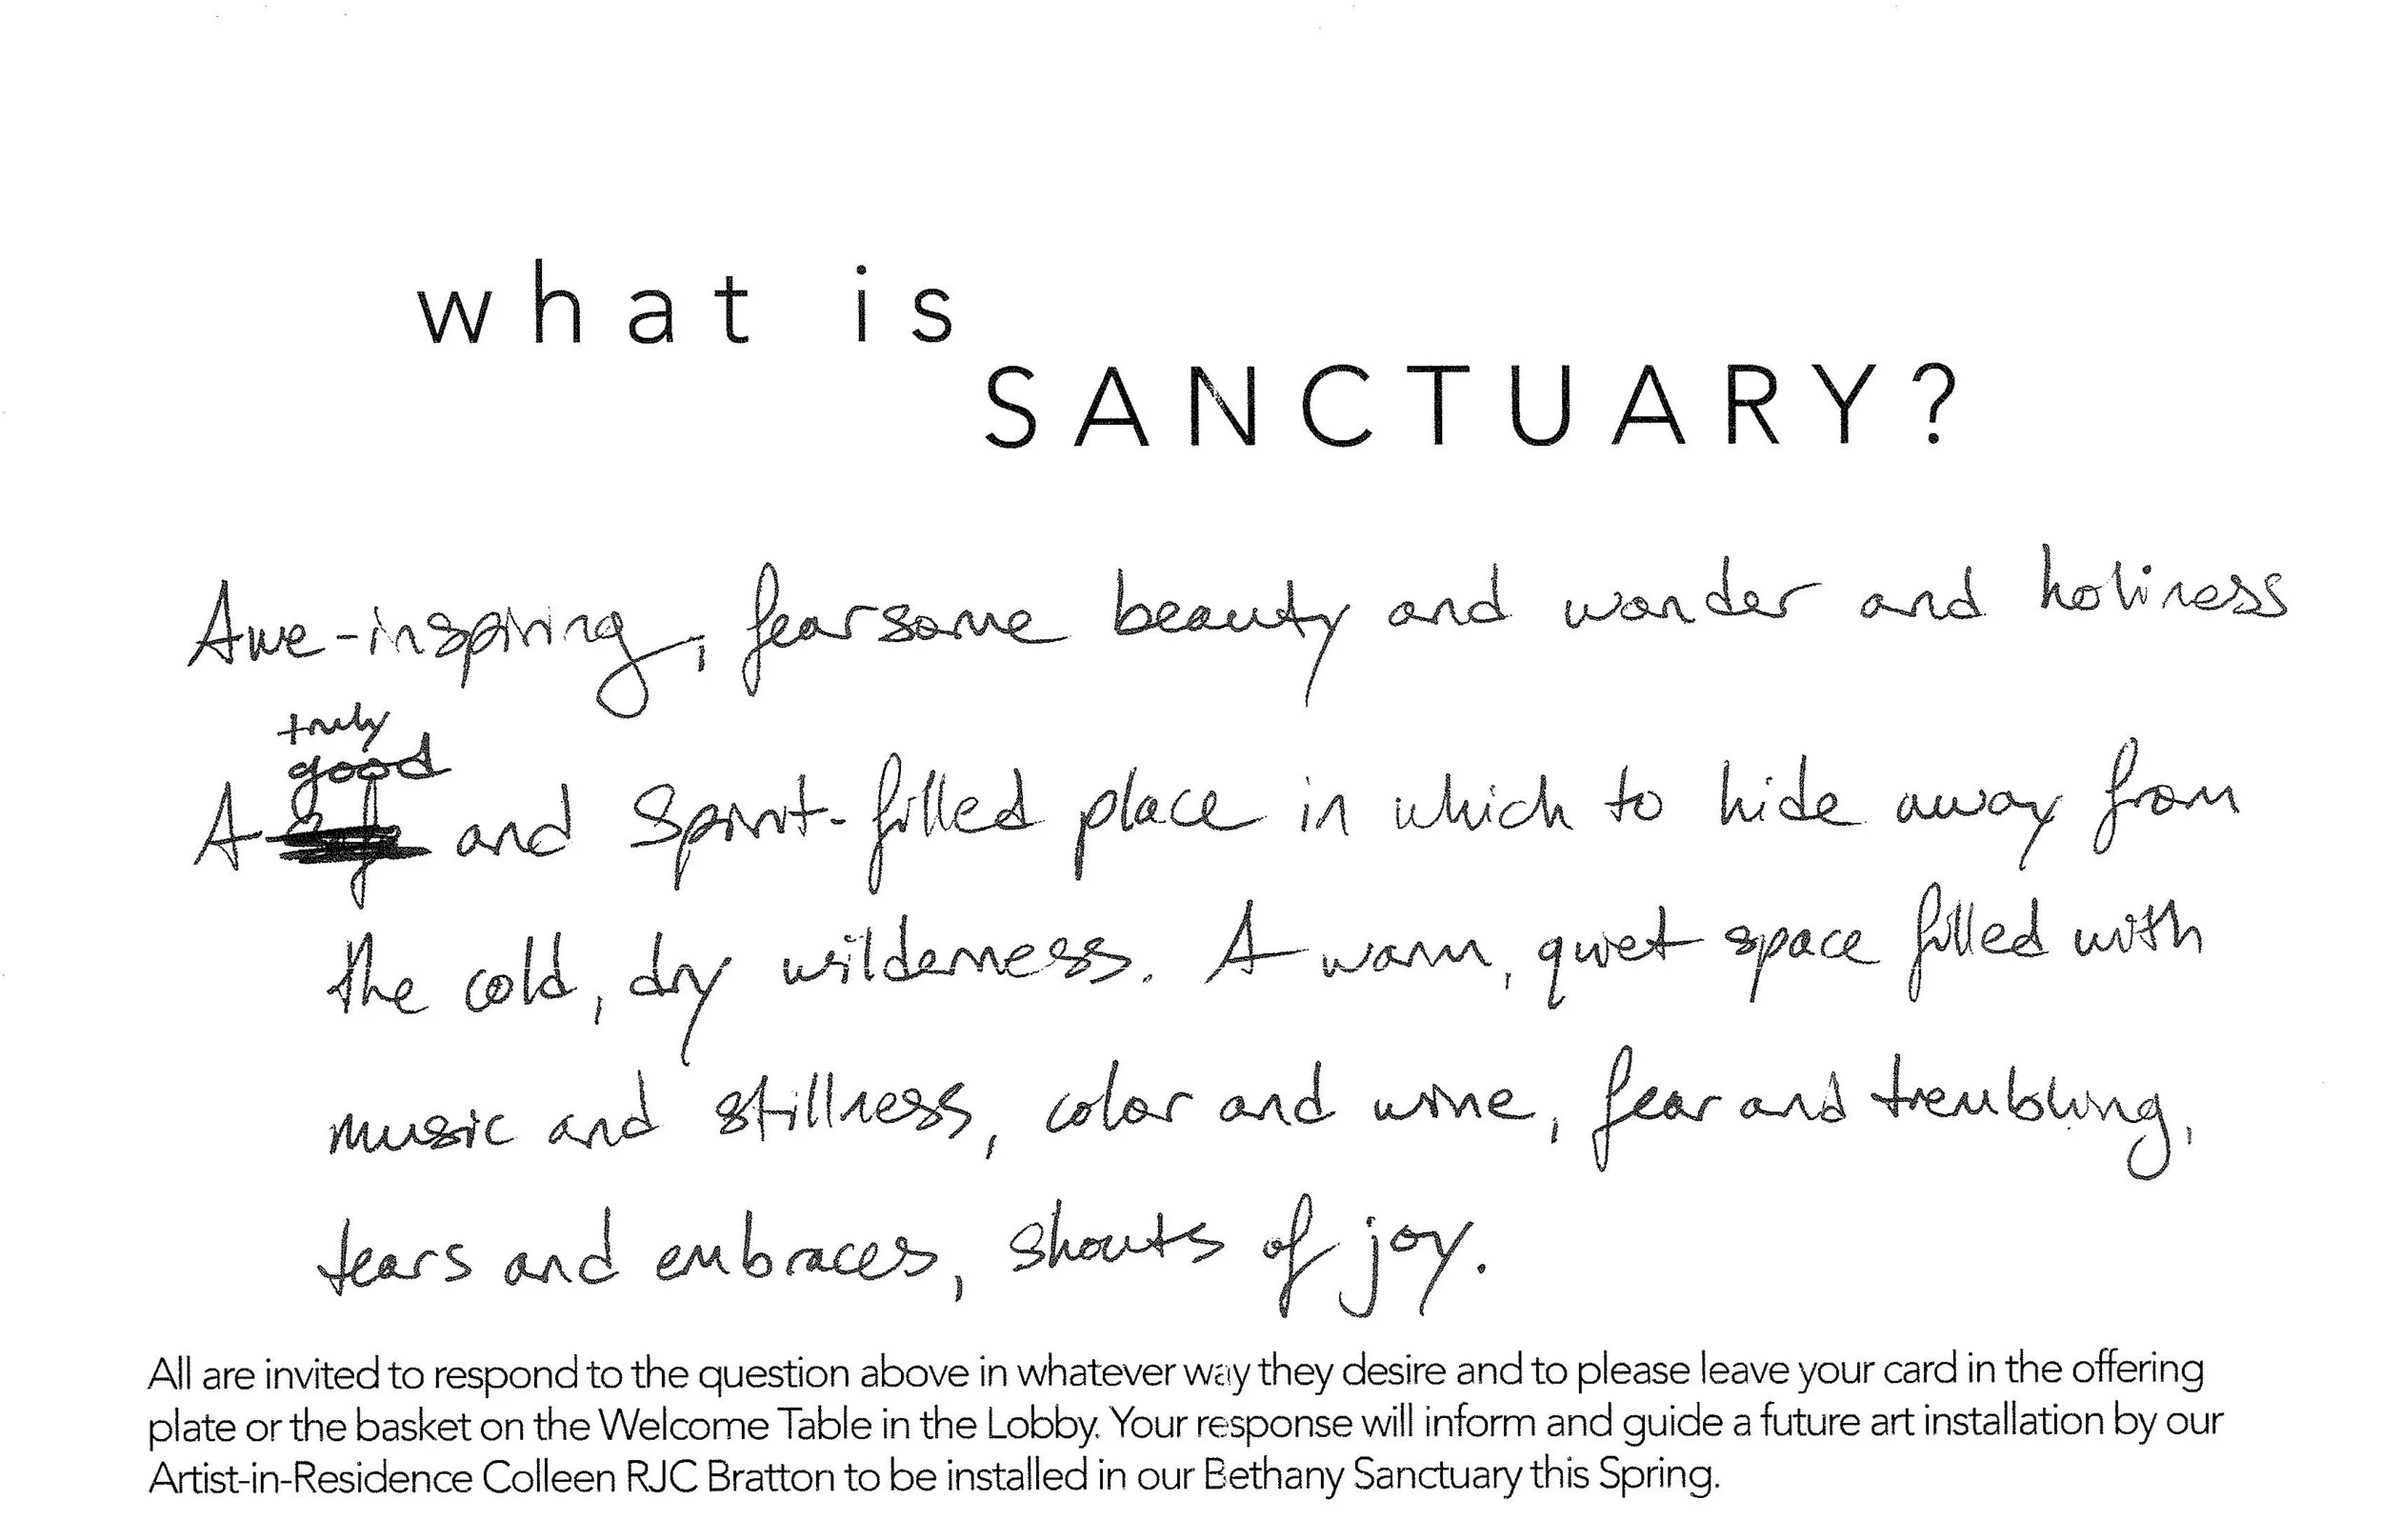 what is
SANCTUARY?
Awe-inspiring, fearsome beauty and wonder and holiness
truly
good
A and Spirit-filled place in which to hide away from
the cold, dry wilderness. A warm, quiet space filled with
music and stillness, color and wine, fear and trembling,
tears and embraces, shouts of joy.
All are invited to respond to the question above in whatever way they desire and to please leave your card in the offering
plate or the basket on the Welcome Table in the Lobby. Your response will inform and guide a future art installation by our
Artist-in-Residence Colleen RJC Bratton to be installed in our Bethany Sanctuary this Spring.